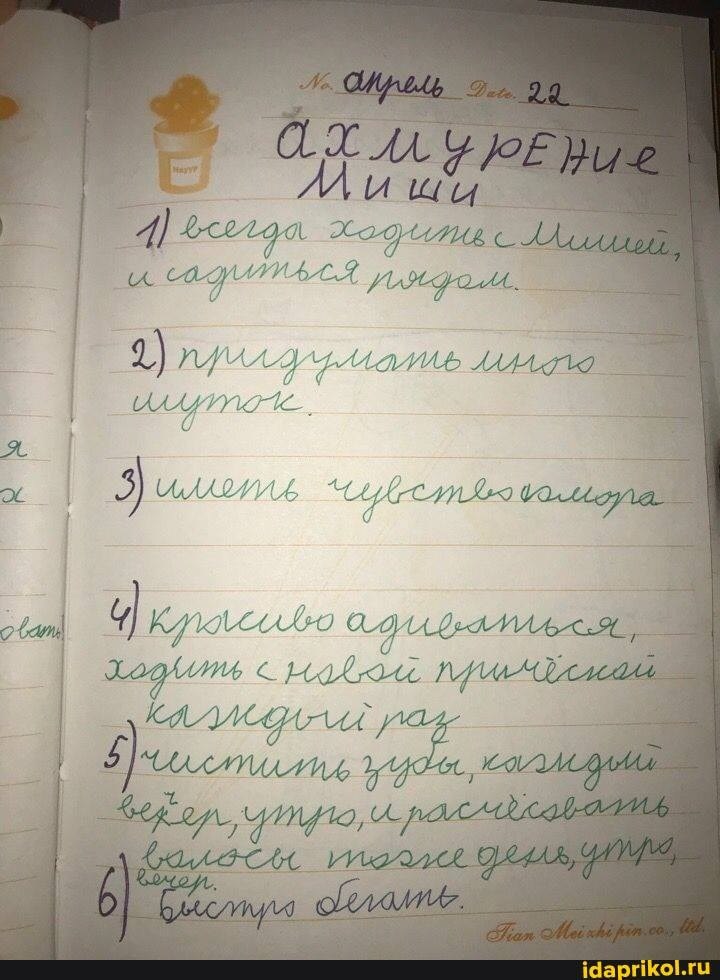 No. апрель Date. 22
ахмурЕНие
Миши
1) всегда ходить с Мишей,
и садиться рядом.
2) придумать много
шуток.
3) иметь чувство юмора
4) красиво адиваться,
ходить с новой причёской
каждый раз
5) чистить зубы, каждый
вечер, утро, и расчёсовать
волосы тоже день, утро,
вечер.
6) Быстро бегать.
я
х
овать
Tian Meizhi pin.co., ltd.
idaprikol.ru